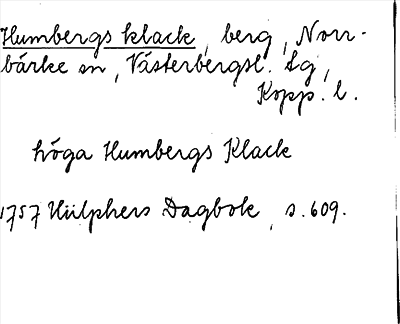 Humbergs klack, berg, Norr-
bärke sn, Västerbergsl. dg,
Kopp. l.
höga Humbergs Klack
1757 Hülphers Dagbok, s. 609.